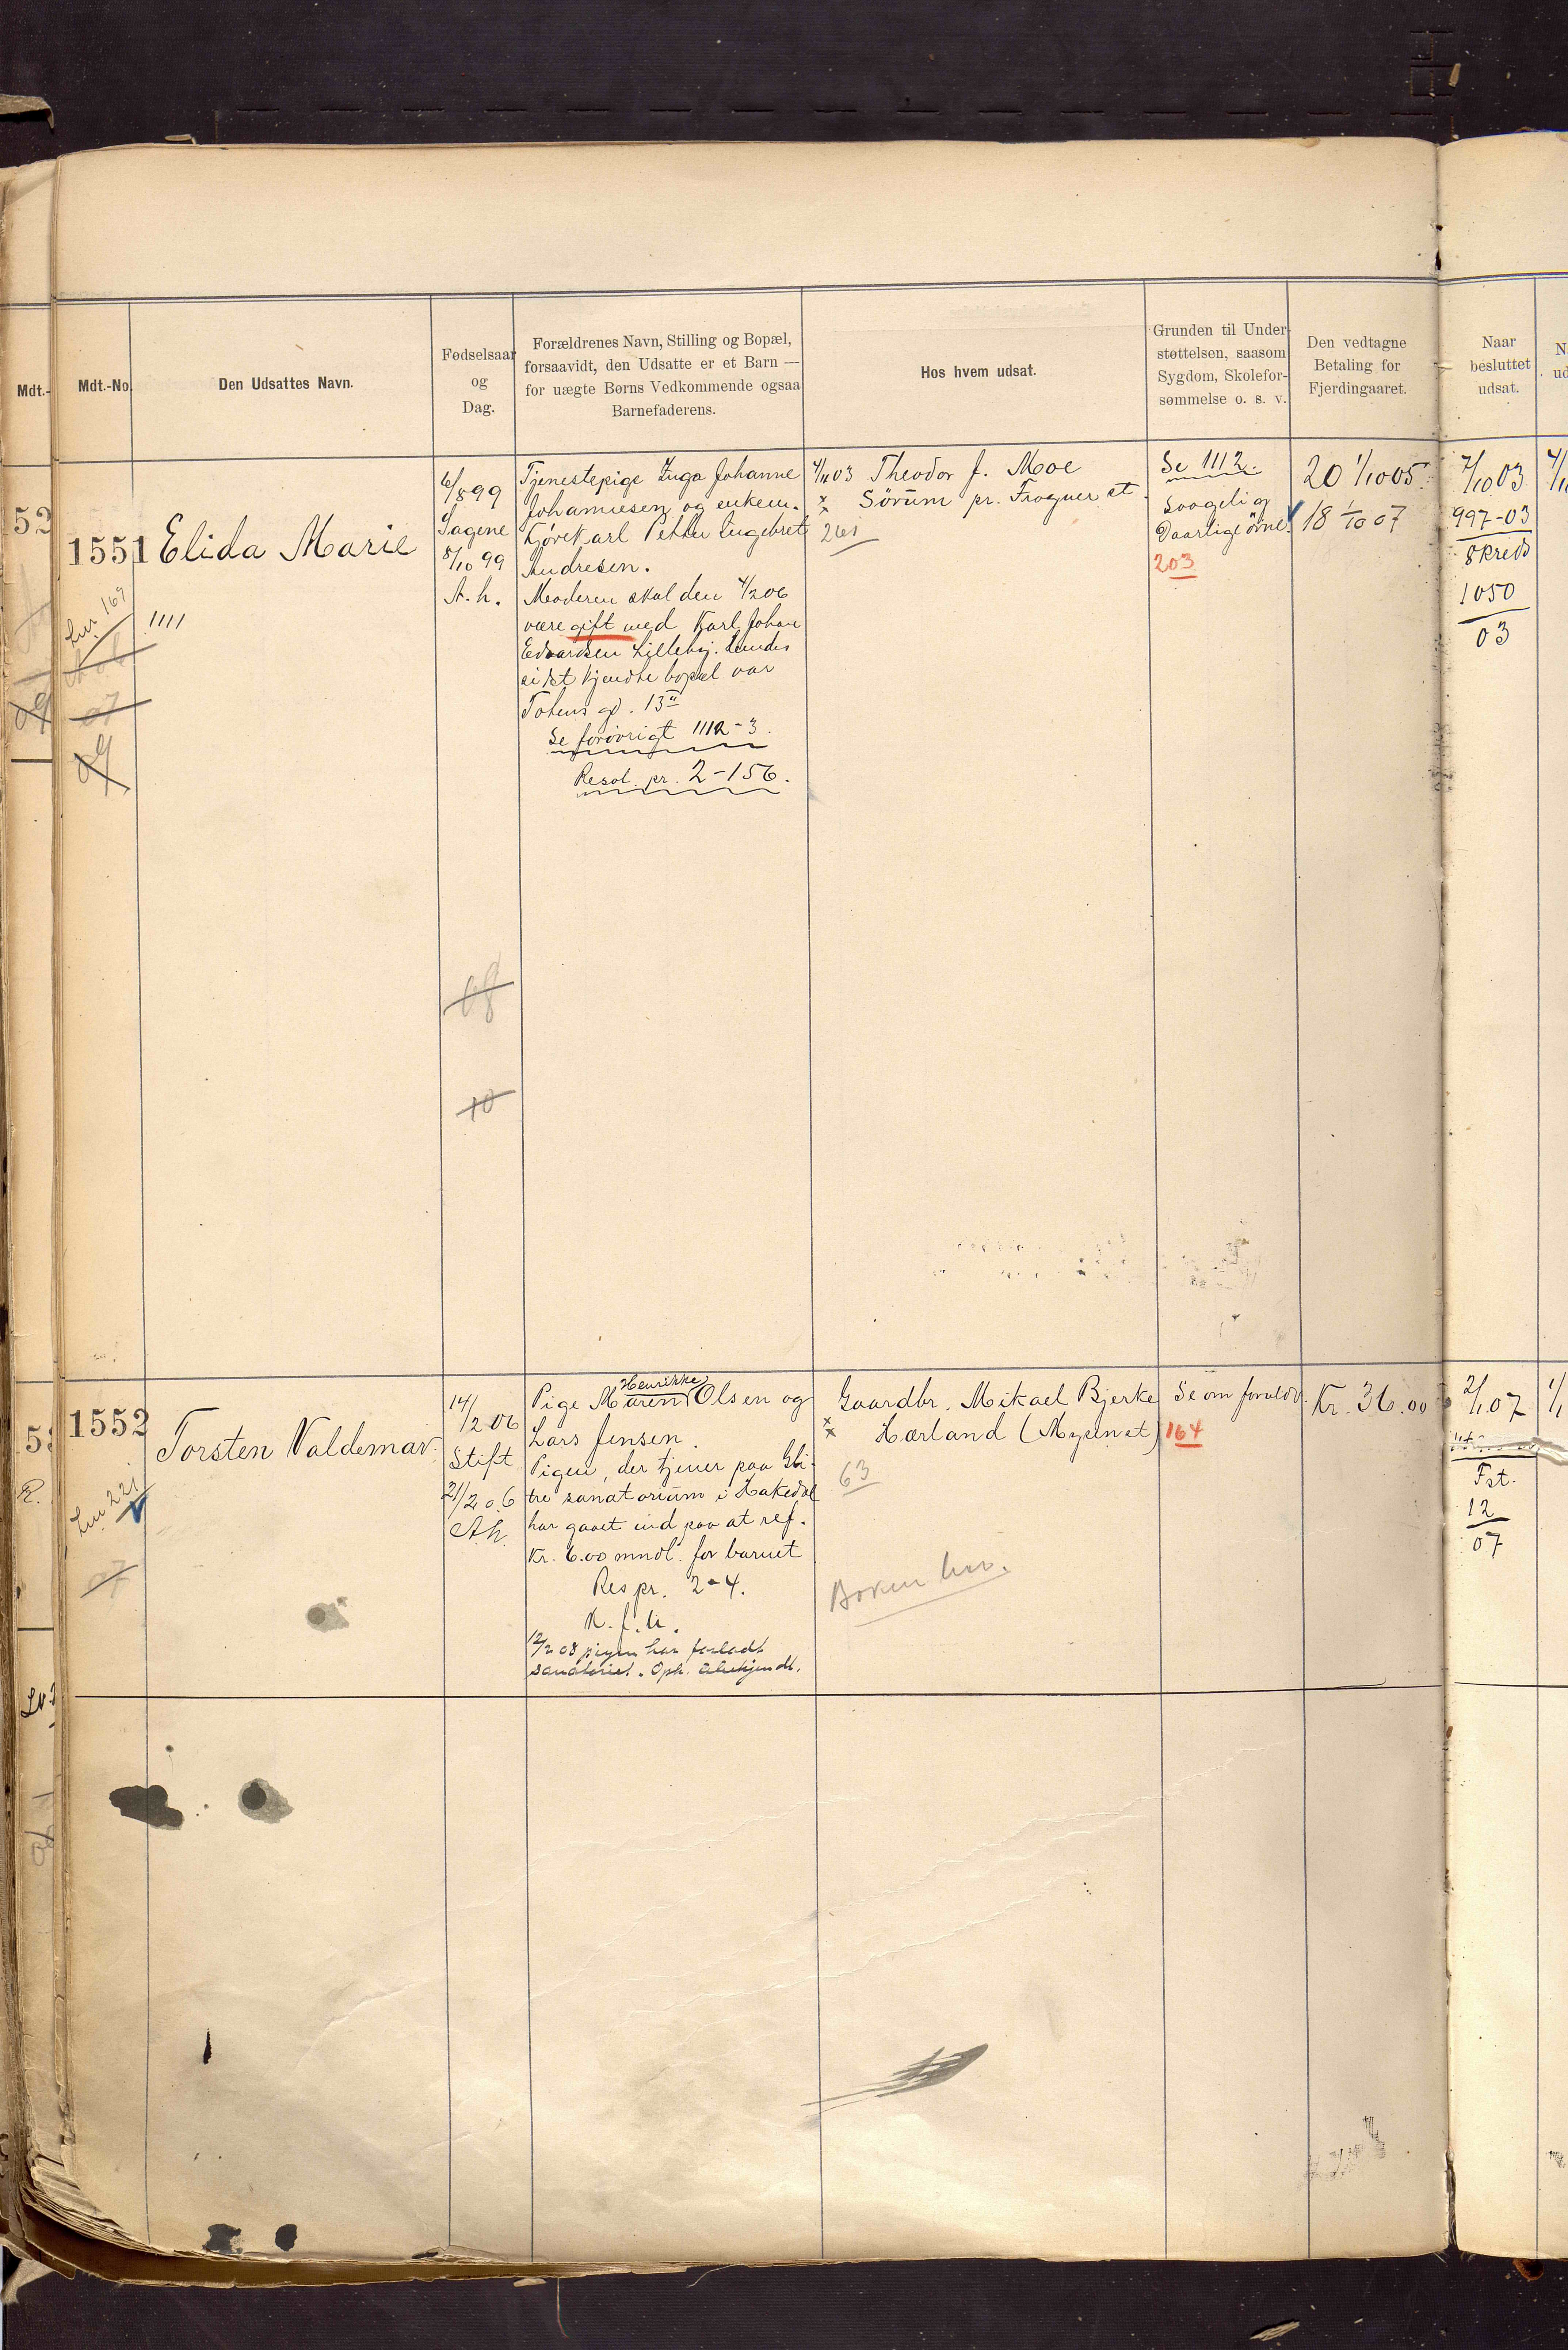 Mdt.-
Mdt.-No.
Den Udsattes Navn.
Fødselsaar
og
Dag.
Forældrenes Navn, Stilling og Bopæl,
forsaavidt, den Udsatte er et Barn —
for uægte Børns Vedkommende ogsaa
Barnefaderens.
Hos hvem udsat.
Grunden til Under-
støttelsen, saasom
Sygdom, Skolefor-
sømmelse o. s. v.
Den vedtagne
Betaling for
Fjerdingaaret.
Naar
besluttet
udsat.
52
1551
Elida Marie
1111
Lnr 169
07
09
6/8 99
Sagene
8/10 99
A. h.
08
10
Tjenestepige Inga Johanne
Johannesen og enkem.
Kjørekarl Petter Ingebret
Andresen.
Moderen skal den 4/2 06
være gift med Karl Johan
Edvardsen Lilleby. Hendes
sidst kjendte bopæl var
Totens gd. 13 II
Se forøvrigt 1112-3.
Resol. pr. 2-156.
4/11 03 Theodor J. Moe
Sørum pr. Frogner st.
261
Se 1112.
Svagelig
Daarlige øine.
203
20 1/10 05.
18 1/10 07
7/10 03
997-03
8 kreds
1050
03
53
1552
Torsten Valdemar.
Lnr 221
07
14/2 06
Stift
21/2 06
A.h.
Henrikke
Pige Maren Olsen og
Lars Jensen.
Pigen, der tjener paa Gli-
tre sanatorium i Hakedal
har gaaet ind paa at ref.
Kr. 6.00 mndl. for barnet
Res pr. 2-4.
K. f. U.
12/2 08 pigen har forladt
sanatoriet. Oph. ubekjendt.
Gaardbr. Mikael Bjerke
Hærland (Mysen st)
63
Se om foraldr.
164
Kr. 36.00
2/1 07
Fst.
12
07